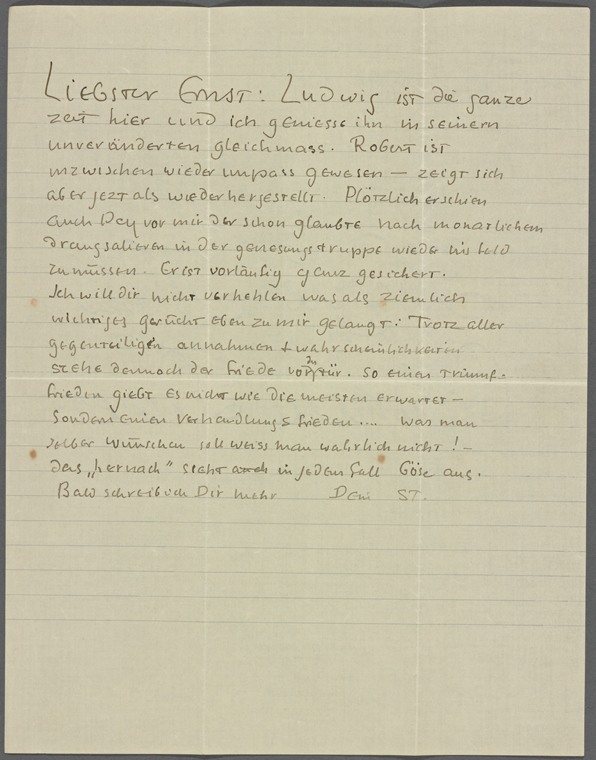 Liebster Ernst: Ludwig ist die ganze
zeit hier und ich geniesse ihn in seinem
unveränderten gleichmass. Robert ist
inzwischen wieder unpass gewesen — zeigt sich
aber jezt als wiederhergestellt. Plötzlich erschien
auch Pcy vor mir der schon glaubte nach monatlichem
drangsalieren in der genesungstruppe wieder ins feld
zu müssen. Er ist vorläufig ganz gesichert.
Ich will dir nicht verhehlen was als ziemlich
wichtiges gerücht eben zu mir gelangt: Trotz aller
gegenteiligen annahmen + wahrscheinlichkeiten
stehe dennoch der friede vor der tür. so einen triumf-
frieden giebt es nicht wie die meisten erwarten —
sondern einen verhandlungsfrieden .... was man
selber wünschen soll weiss man wahrlich nicht! —
das „hernach" sieht auch in jedem fall böse aus.
Bald schreib ich Dir mehr Dein ST.